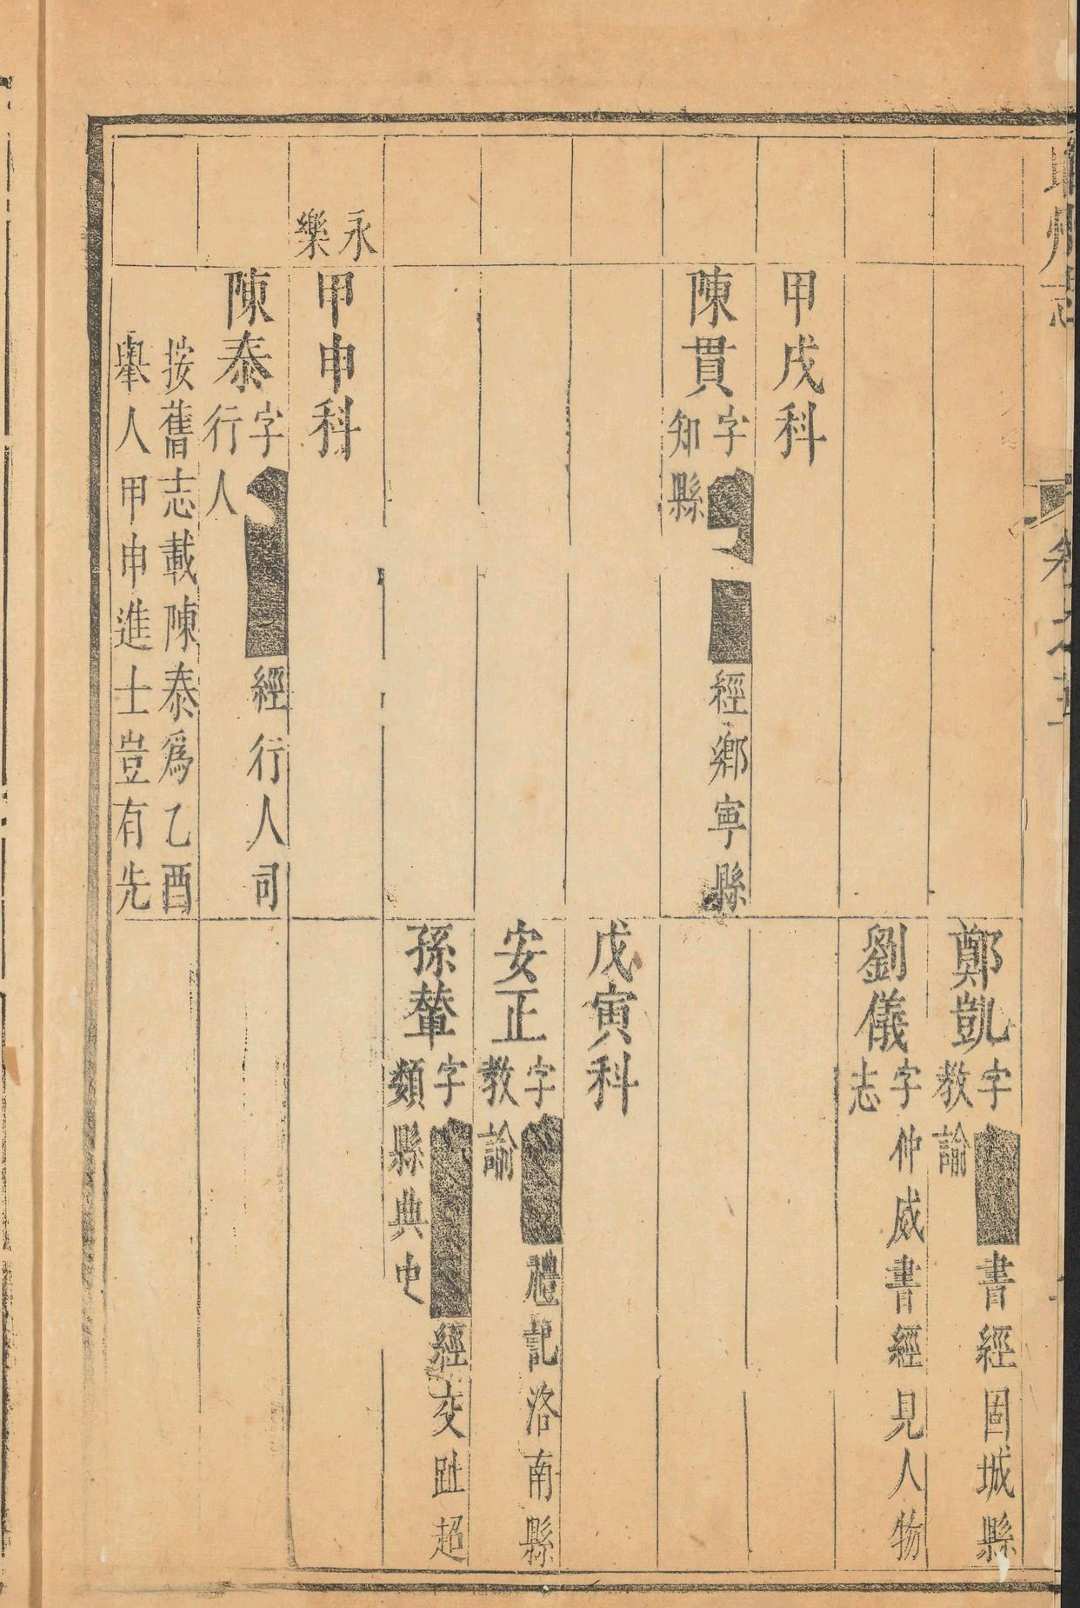 州志
鄭凱字 書經固城縣
教諭
劉儀字仲威書經見人物
志
甲戌科
陳貫字 經鄉寧縣
知縣
戊寅科
安正字 禮記洛南縣
教諭
孫輦字 經交趾超
類縣典史
永樂
甲申科
陳泰字 經行人司
行人
按舊志載陳泰爲乙酉
舉人甲申進士豈有先